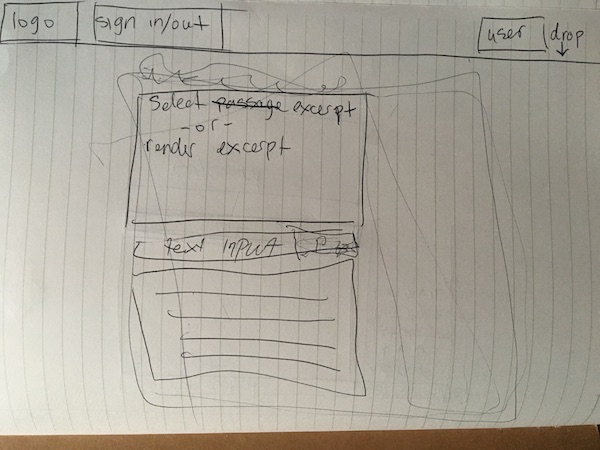 logo
sign in/out
user
drop
Select passage excerpt
-or-
render excerpt
text input